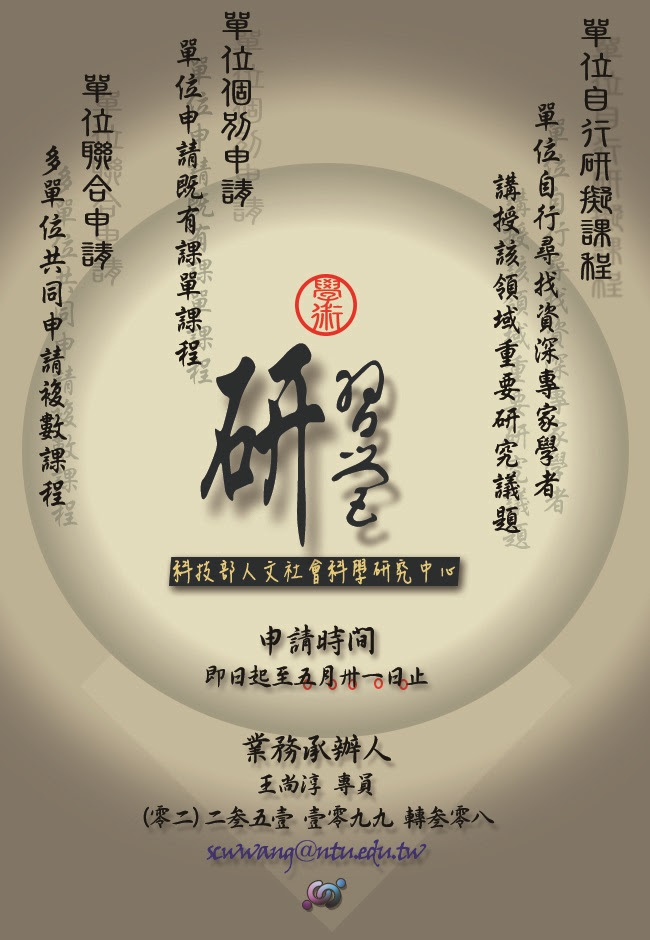 單位自行研擬課程
單位自行尋找資深專家學者
講授該領域重要研究議題
單位個別申請
單位申請既有課單課程
單位聯合申請
多單位共同申請複數課程
學術
研習營
科技部人文社會科學研究中心
申請時間
即日起至五月卅一日止
業務承辦人
王尚淳 專員
(零二) 二叁五壹 壹零九九 轉叁零八
scwwang@ntu.edu.tw